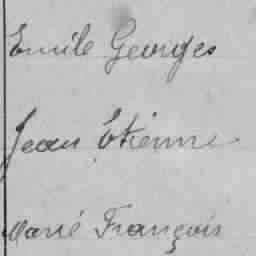 Emile Georges
Jean Etienne
Marie François